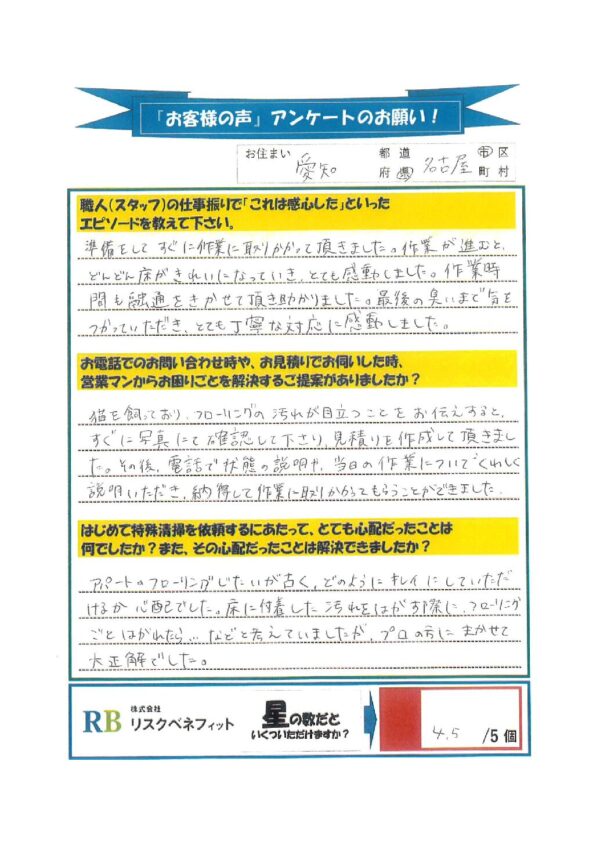 『お客様の声』アンケートのお願い！
お住まい 愛知 都道府県 名古屋 市区町村
職人（スタッフ）の仕事振りで「これは感心した」といった
エピソードを教えて下さい。
準備をしてすぐに作業に取りかかって頂きました。作業が進むと、
どんどん床がきれいになっていき、とても感動しました。作業時
間も融通をきかせて頂き助かりました。最後の臭いまで気を
つかっていただき、とても丁寧な対応に感動しました。
お電話でのお問い合わせ時や、お見積りでお伺いした時、
営業マンからお困りごとを解決するご提案がありましたか？
猫を飼っており、フローリングの汚れが目立つことをお伝えすると、
すぐに写真にて確認して下さり、見積りを作成して頂きまし
た。その後、電話で状態の説明や、当日の作業についてくわしく
説明いただき、納得して作業に取りかかってもらうことができました。
はじめて特殊清掃を依頼するにあたって、とても心配だったことは
何でしたか？また、その心配だったことは解決できましたか？
アパートのフローリングじたいが古く、どのようにキレイにしていただ
けるか心配でした。床に付着した汚れをはがす際に、フローリング
ごとはがれたら…などと考えていましたが、プロの方にまかせて
大正解でした。
RB 株式会社 リスクベネフィット
星の数だと
いくついただけますか？
4.5 /5個